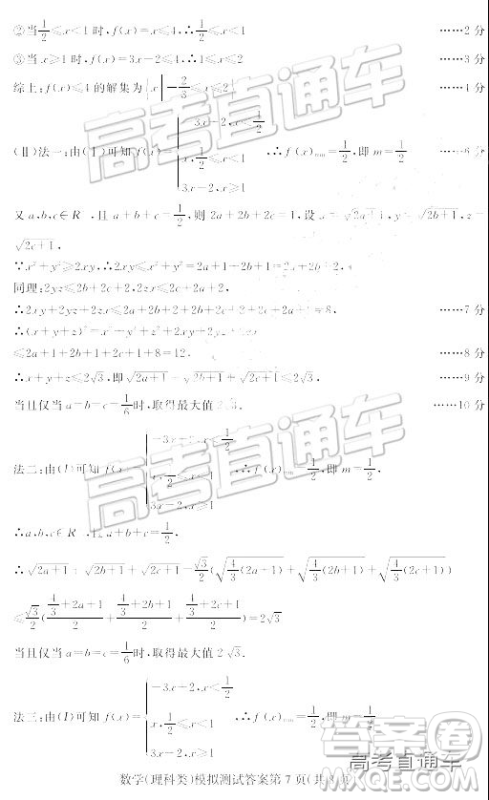 ②当1/2≤x<1时,f(x)=x≤4,∴1/2≤x<1 ……2分
③当x≥1时,f(x)=3x-2≤4,∴1≤x≤2 ……3分
综上:f(x)≤4的解集为{x|-2/3≤x≤2} ……4分
(Ⅱ)法一:由(Ⅰ)可知f(x)={-3x+2,x<1/2
x,1/2≤x<1 ∴f(x)min=1/2,即m=1/2 ……6分
3x-2,x≥1
又a,b,c∈R,且a+b+c=1/2,则2a+2b+2c=1,设x=√2a+1,y=√2b+1,z=
√2c+1,
∵x²+y²≥2xy,∴2xy≤x²+y²=2a+1+2b+1=2a+2b+2,
同理:2yz≤2b+2c+2,2zx≤2c+2a+2,
∴2xy+2yz+2zx≤2a+2b+2+2b+2c+2+2c+2a+2=8, ……7分
∴(x+y+z)²=x²+y²+z²+2xy+2yz+2zx
≤2a+1+2b+1+2c+1+8=12, ……8分
∴x+y+z≤2√3,即√2a+1+√2b+1+√2c+1≤2√3, ……9分
当且仅当a=b=c=1/6时,取得最大值2√3. ……10分
法二:由(Ⅰ)可知f(x)={-3x+2,x<1/2
x,1/2≤x<1 ∴f(x)min=1/2,即m=1/2,
3x-2,x≥1
∴a,b,c∈R,且a+b+c=1/2,
∴√2a+1+√2b+1+√2c+1=√3/2(√4/3(2a+1)+√4/3(2b+1)+√4/3(2c+1))
≤√3/2((4/3+2a+1)/2+(4/3+2b+1)/2+(4/3+2c+1)/2)=2√3
当且仅当a=b=c=1/6时,取得最大值2√3.
法三:由(Ⅰ)可知f(x)={-3x+2,x<1/2
x,1/2≤x<1 ∴f(x)min=1/2,即m=1/2,
数学(理科类)模拟测试答案第7页(共8页)
高考直通车
高考直通车
答案圈
高考直通车
MXQE.COM